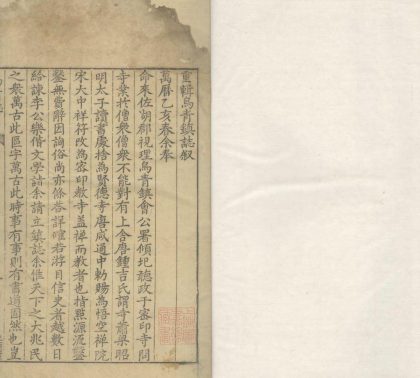 重輯烏青鎮誌叙
萬曆乙亥春余奉
命來佐湖郡視理烏青鎮會公署傾圮聽政于密印寺問
寺業於僧衆僧衆不能對有上舍唐鍾吉氏謂寺蕭梁昭
明太子讀書處捨為賢德寺唐咸通中勅賜為悟空禪院
宋大中祥符改為密印教寺盖禪而教者也指點源流鑿
鑿無嘗辭因詢俗尚亦條答詳礭若游目信史者越數日
給諫李公樂偕文學諸余請立鎮誌余惟天下之大兆民
之衆萬古此區宇萬古此時事有事則有書道固然也豈